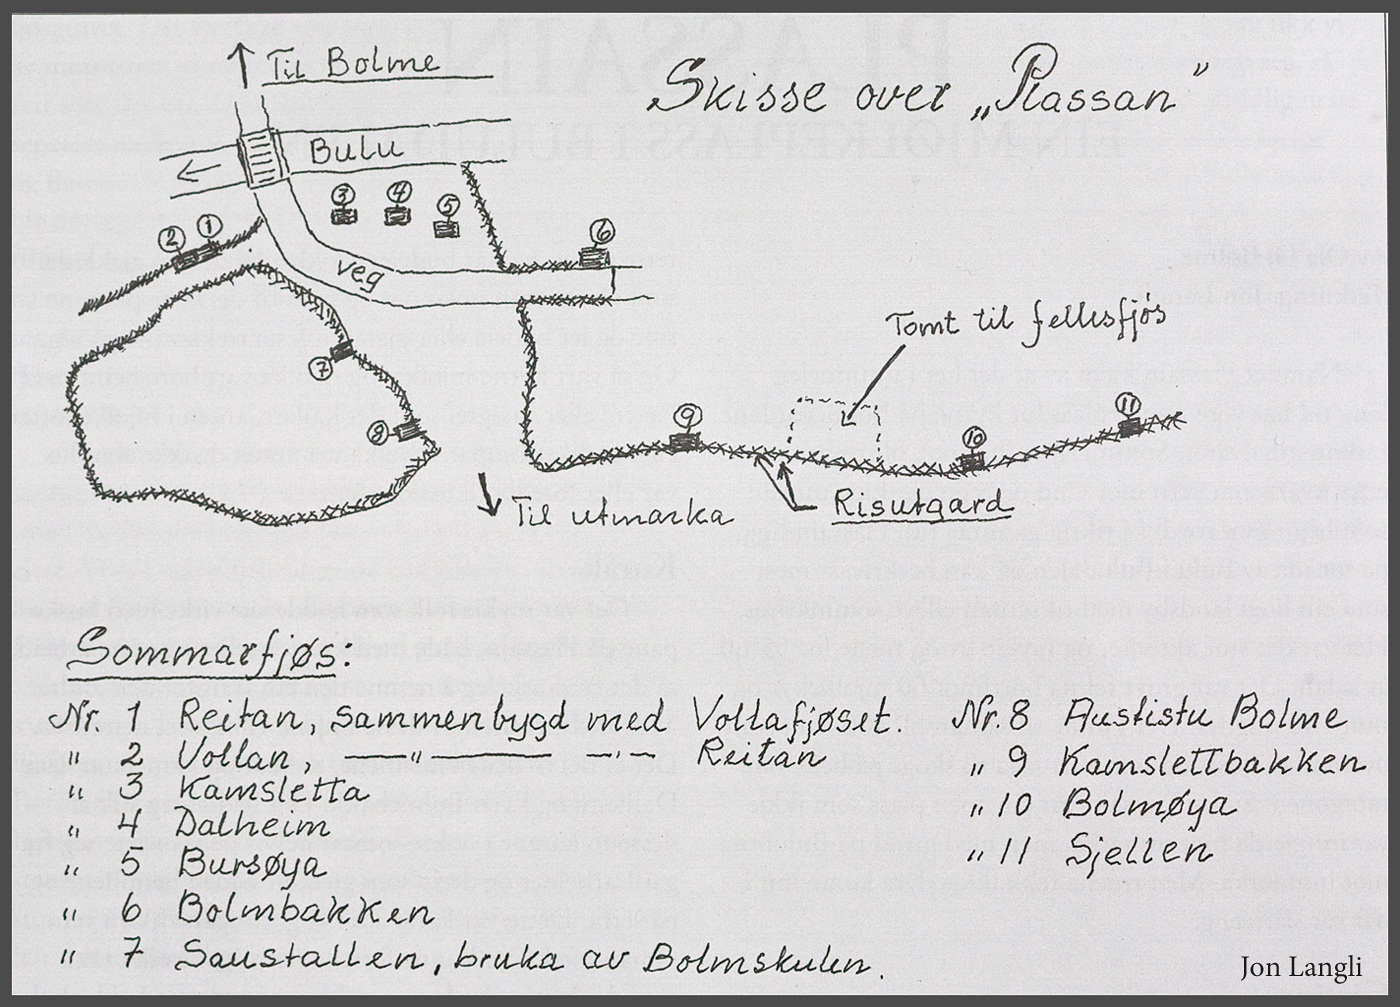 Til Bolme
Skisse over „Plassan"
Bulu
3
4
5
6
2
1
Veg
Tomt til fellesfjøs
7
8
9
10
11
Til utmarka
Risutgard
Sommarfjøs.
Nr. 1 Reitan, sammenbygd med Vollafjøset.
" 2 Vollan, — " — — " — Reitan
" 3 Kamsletta
" 4 Dalheim
" 5 Bursøya
" 6 Bolmbakken
" 7 Saustallen, bruka av Bolmskulen.
Nr. 8 Austistu Bolme
" 9 Kamslettbakken
" 10 Bolmøya
" 11 Sjellen
Jon Langli